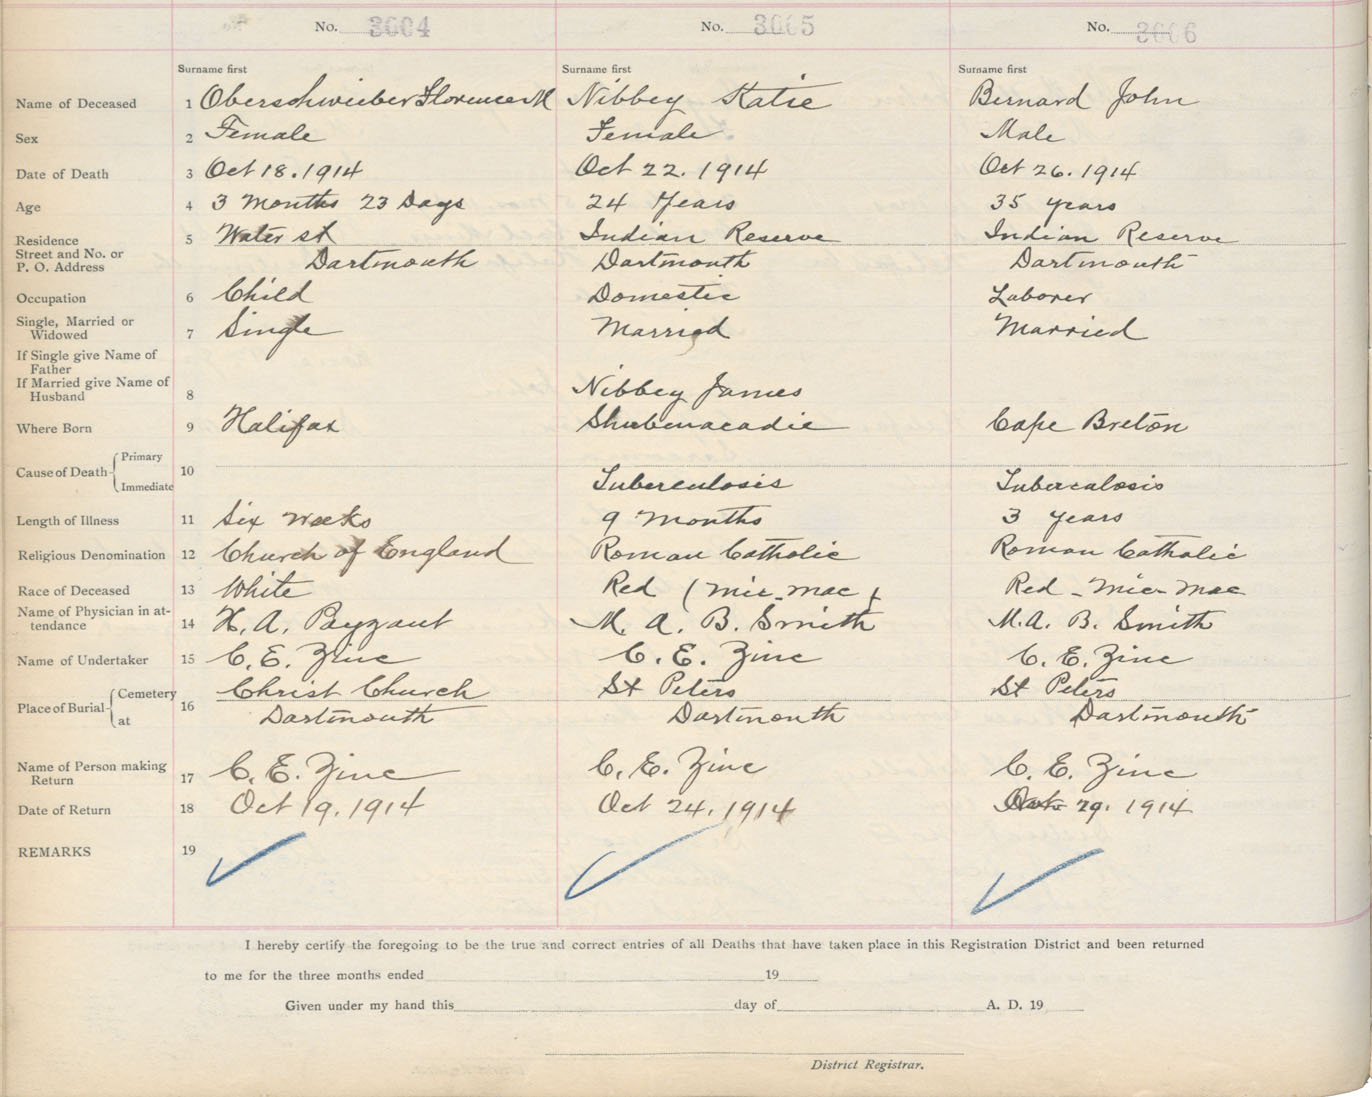 No. 3004 No. 3005 No. 3006
Surname first Surname first Surname first
Name of Deceased 1 Oberschwieber Florence M Nibbey Katie Bernard John
Sex 2 Female Female Male
Date of Death 3 Oct 18. 1914 Oct 22. 1914 Oct 26. 1914
Age 4 3 Months 23 Days 24 Years 35 years
Residence 5 Water st Indian Reserve Indian Reserve
Street and No. or
P. O. Address Dartmouth Dartmouth Dartmouth
Occupation 6 Child Domestic Laborer
Single, Married or
Widowed 7 Single Married Married
If Single give Name of
Father
If Married give Name of
Husband 8 Nibbey James
Where Born 9 Halifax Shubenacadie Cape Breton
Cause of Death Primary 10
Immediate Tuberculosis Tubercalosis
Length of Illness 11 Six weeks 9 Months 3 years
Religious Denomination 12 Church of England Roman Catholic Roman Catholic
Race of Deceased 13 White Red (Mic-mac) Red - Mic-Mac
Name of Physician in at-
tendance 14 H. A. Payzant M. A. B. Smith M. A. B. Smith
Name of Undertaker 15 C. E. Zinc C. E. Zinc C. E. Zinc
Place of Burial Cemetery 16 Christ Church St Peters St Peters
at Dartmouth Dartmouth Dartmouth
Name of Person making
Return 17 C. E. Zinc C. E. Zinc C. E. Zinc
Date of Return 18 Oct 19. 1914 Oct 24, 1914 Oct 29. 1914
REMARKS 19
I hereby certify the foregoing to be the true and correct entries of all Deaths that have taken place in this Registration District and been returned
to me for the three months ended 19
Given under my hand this day of A. D. 19
District Registrar.